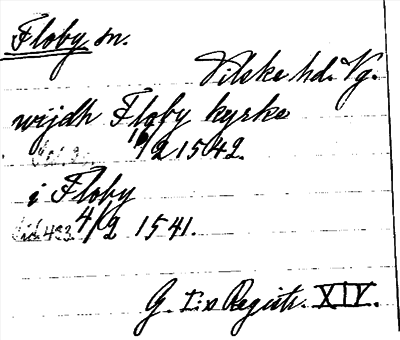 Floby sn.
Vilske hd. Vg.
wijdh Floby kyrke
16/2 1542.
i Floby
sid. 433. 4/2 1541.
G. I:s Registr. XIV.